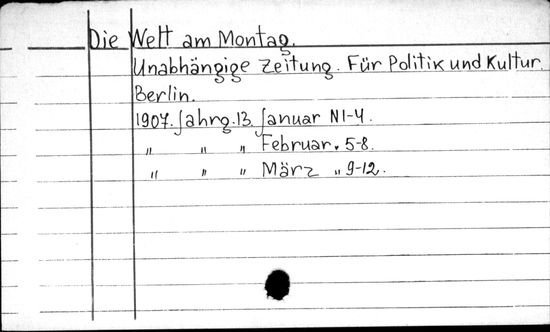 Die Welt am Montag.
Unabhängige Zeitung. Für Politik und Kultur.
Berlin.
1907. Jahrg. 13. Januar N1-4.
" " " Februar " 5-8.
" " " März " 9-12.